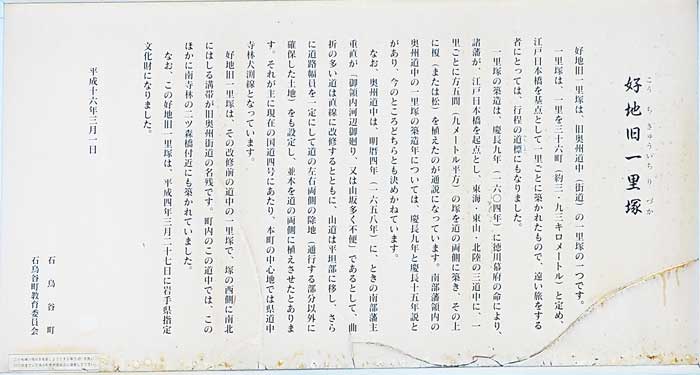 好地旧一里塚
こうちきゅういちりづか
好地旧一里塚は、旧奥州道中（街道）の一里塚の一つです。
一里塚は、一里を三十六町（約三・九三キロメートル）と定め、
江戸日本橋を基点として一里ごとに築かれたもので、遠い旅をする
者にとっては、行程の道標にもなりました。
一里塚の築造は、慶長九年（一六〇四年）に徳川幕府の命により、
諸藩が、江戸日本橋を起点とし、東海・東山・北陸の三道中に、一
里ごとに方五間（九メートル平方）の塚を道の両側に築き、その上
に榎（または松）を植えたのが通説になっています。南部藩領内の
奥州道中の一里塚の築造年については、慶長九年と慶長十五年説と
があり、今のところどちらとも決めかねています。
なお、奥州道中は、明暦四年（一六五八年）に、ときの南部藩主
重直が「御領内河辺御廻り、又は山坂多く不便」であるとして、曲
折の多い道は直線に改修するとともに、山道は平坦部に移し、さら
に道路幅員を一定にして道の左右両側の除地（通行する部分以外に
確保した土地）をも設定し、並木を道の両側に植えさせたとありま
す。それが主に現在の国道四号にあたり、本町の中心地では県道中
寺林犬渕線となっています。
好地旧一里塚は、その改修前の道中の一里塚で、塚の西側に南北
にはしる溝帯が旧奥州街道の名残です。町内のこの道中では、この
ほかに南寺林の二ツ森橋付近にも築かれていました。
なお、この好地旧一里塚は、平成四年三月二十七日に岩手県指定
文化財になりました。
平成十六年三月一日
石鳥谷町
石鳥谷町教育委員会